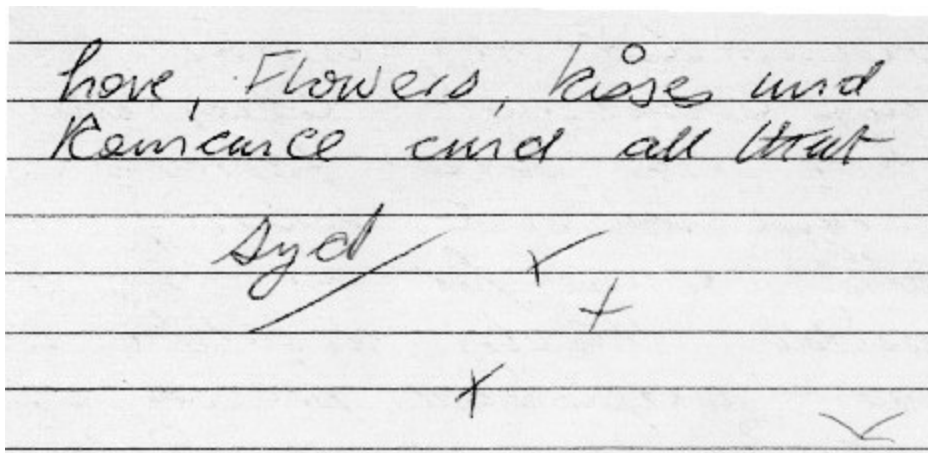 Love, Flowers, kisses and
Romance and all that
Syd
x
x
x